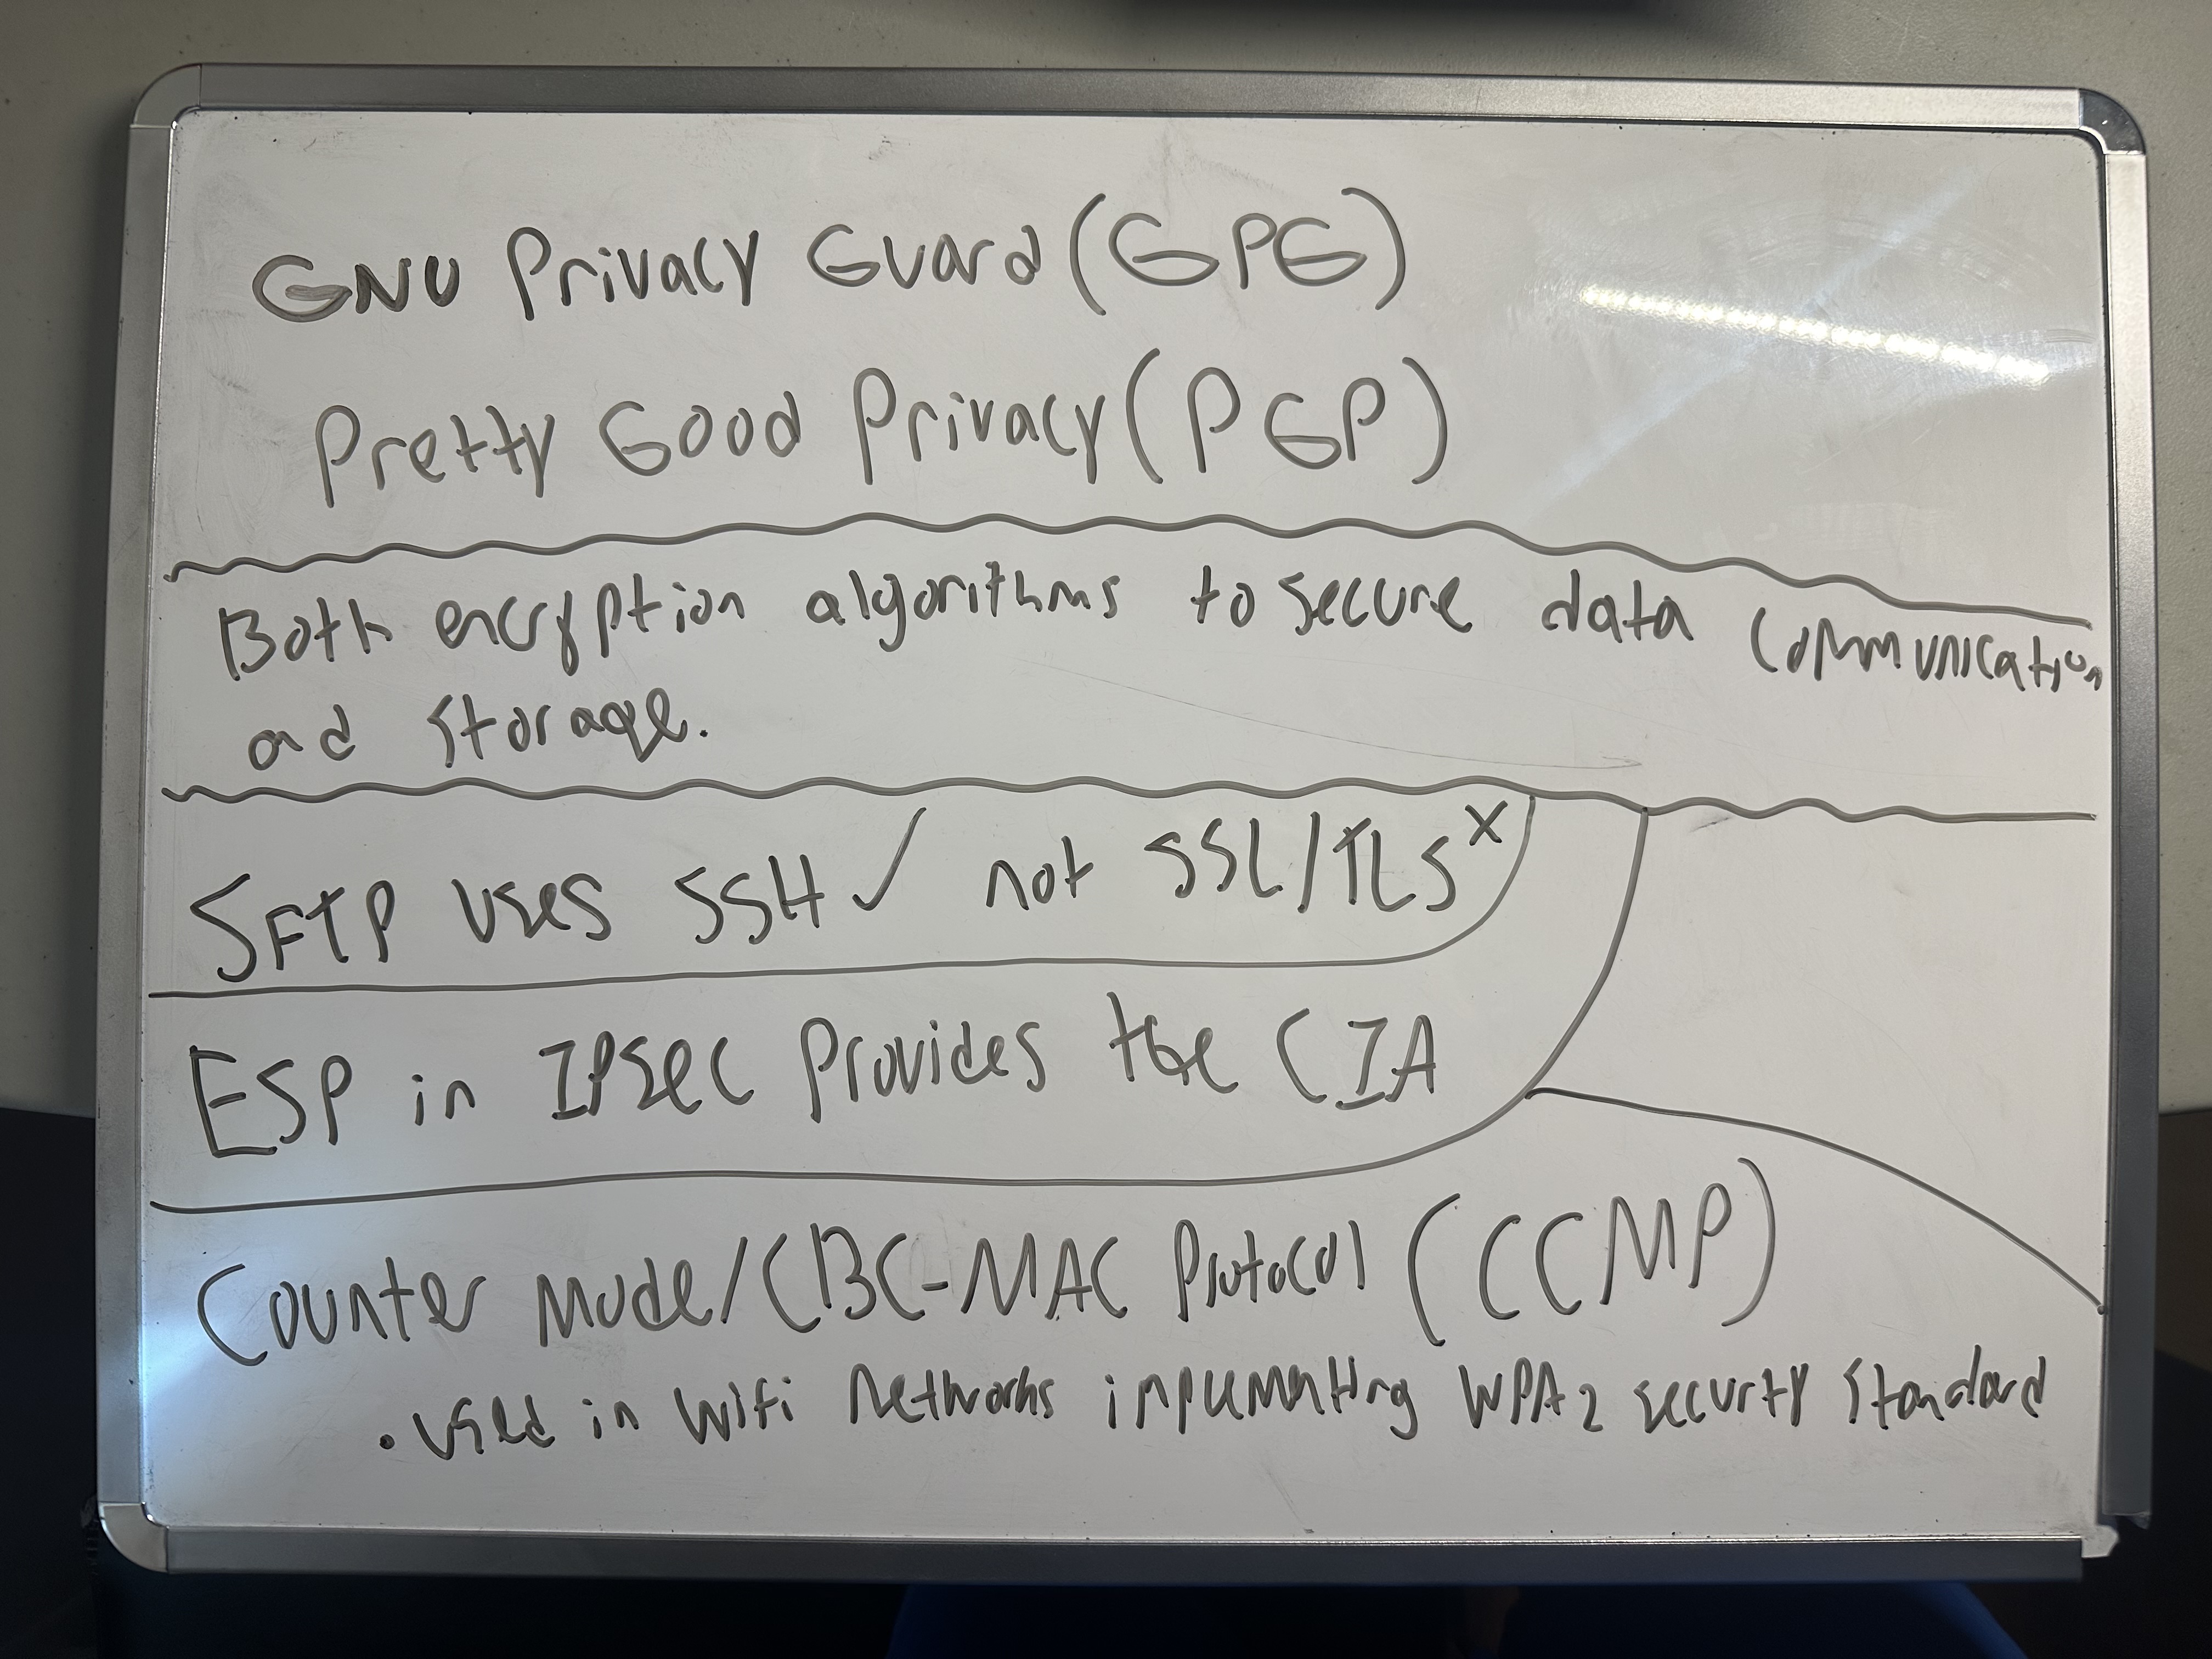 GNU Privacy Guard (GPG)
Pretty Good Privacy (PGP)
Both encryption algorithms to secure data communication
and storage.
SFTP uses SSH ✓ not SSL/TLS x
ESP in IPSec Provides the CIA
Counter Mode/CBC-MAC Protocol (CCMP)
• Used in Wifi Networks implementing WPA2 security standard